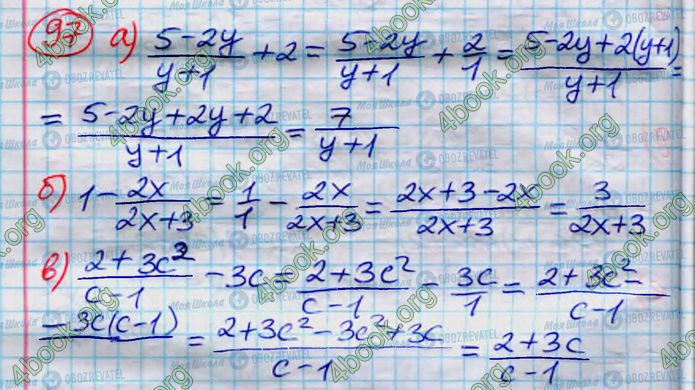 97 а) (5-2y)/(y+1) + 2 = (5-2y)/(y+1) + 2/1 = (5-2y+2(y+1))/(y+1) =
= (5-2y+2y+2)/(y+1) = 7/(y+1)
б) 1 - 2x/(2x+3) = 1/1 - 2x/(2x+3) = (2x+3-2x)/(2x+3) = 3/(2x+3)
в) (2+3c²)/(c-1) - 3c = (2+3c²)/(c-1) - 3c/1 = (2+3c²-)/(c-1)
-3c(c-1) = (2+3c²-3c²+3c)/(c-1) = (2+3c)/(c-1)
4book.org
Моя Школа
OBOZREVATEL